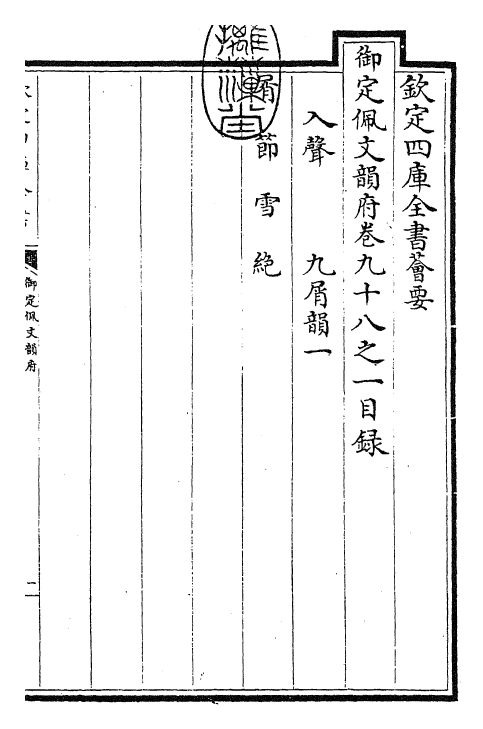 欽定四庫全書薈要
御定佩文韻府卷九十八之一目録
入聲　九屑韻一
屑　節　雪　絶
御定佩文韻府